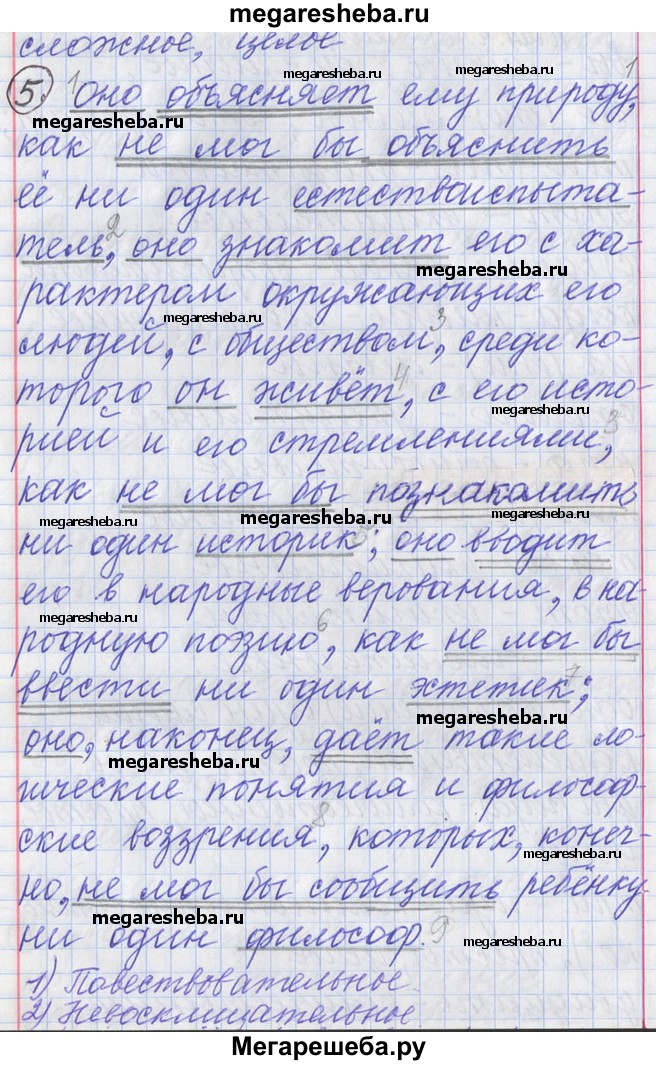 megaresheba.ru
сложное, целое
5. ¹Оно объясняет ему природу,¹
megaresheba.ru
как не мог бы объяснить
её ни один естествоиспыта-
тель,² оно знакомит его с ха-
megaresheba.ru
рактером окружающих его
megaresheba.ru
людей, с обществом,³ среди ко-
торого он живёт,⁴ с его исто-
megaresheba.ru
рией и его стремлениями,³
как не мог бы познакомить
megaresheba.ru megaresheba.ru megaresheba.ru
ни один историк⁵; оно вводит
его в народные верования, в на-
megaresheba.ru
родную поэзию⁶, как не мог бы
ввести ни один эстетик⁷;
megaresheba.ru
оно, наконец, даёт такие ло-
megaresheba.ru
гические понятия и философ-
ские воззрения⁸, которых, конеч-
megaresheba.ru
но, не мог бы сообщить ребёнку
megaresheba.ru
ни один философ.⁹
megaresheba.ru
1) Повествовательное.
2) Невосклицательное
megaresheba.ru
Мегарешеба.ру